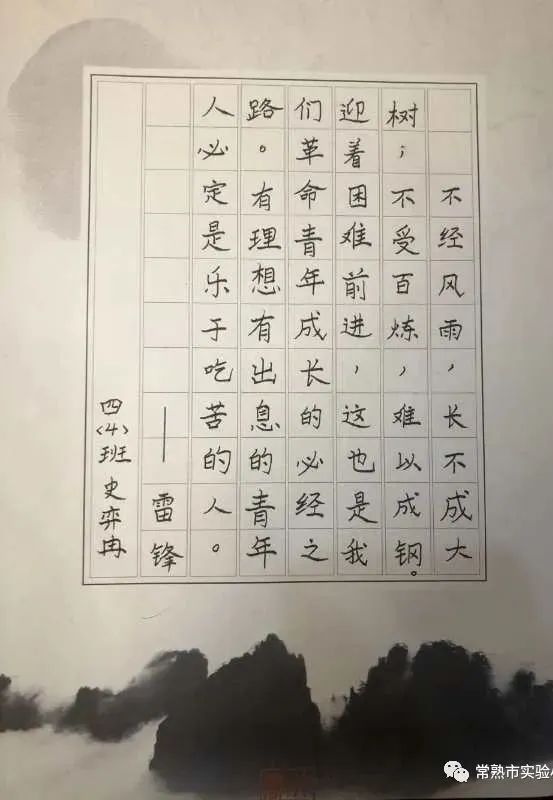 不经风雨，长不成大
树；不受百炼，难以成钢。
迎着困难前进，这也是我
们革命青年成长的必经之
路。有理想有出息的青年
人必定是乐于吃苦的人。
——雷锋
四〈4〉班 史弈冉
常熟市实验小